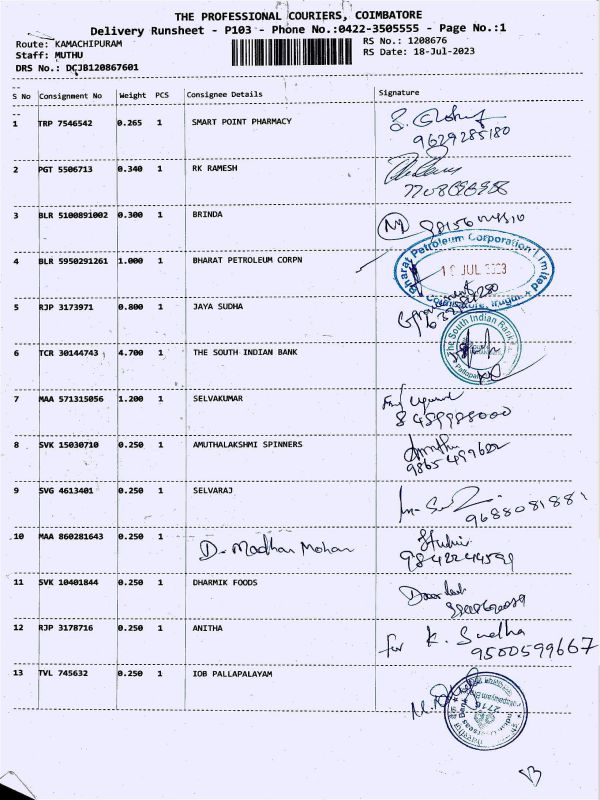 THE PROFESSIONAL COURIERS, COIMBATORE
Delivery Runsheet - P103 - Phone No.:0422-3505555 - Page No.:1
Route: KAMACHIPURAM RS No.: 1208676
Staff: MUTHU RS Date: 18-Jul-2023
DRS No.: DCJB120867601
S No Consignment No Weight PCS Consignee Details Signature
1 TRP 7546542 0.265 1 SMART POINT PHARMACY
9629285180
2 PGT 5506713 0.340 1 RK RAMESH
3 BLR 5100891002 0.300 1 BRINDA
4 BLR 5950291261 1.000 1 BHARAT PETROLEUM CORPN
Bharat Petroleum Corporation Limited
JUL
5 RJP 3173971 0.800 1 JAYA SUDHA
The South Indian Bank
6 TCR 30144743 4.700 1 THE SOUTH INDIAN BANK
7 MAA 571315056 1.200 1 SELVAKUMAR
8 SVK 15030710 0.250 1 AMUTHALAKSHMI SPINNERS
9 SVG 4613401 0.250 1 SELVARAJ
9688081881
10 MAA 860281643 0.250 1 D. Madhan Mohan
11 SVK 10401844 0.250 1 DHARMIK FOODS
12 RJP 3178716 0.250 1 ANITHA
for K. Sudha
9500599667
13 TVL 745632 0.250 1 IOB PALLAPALAYAM